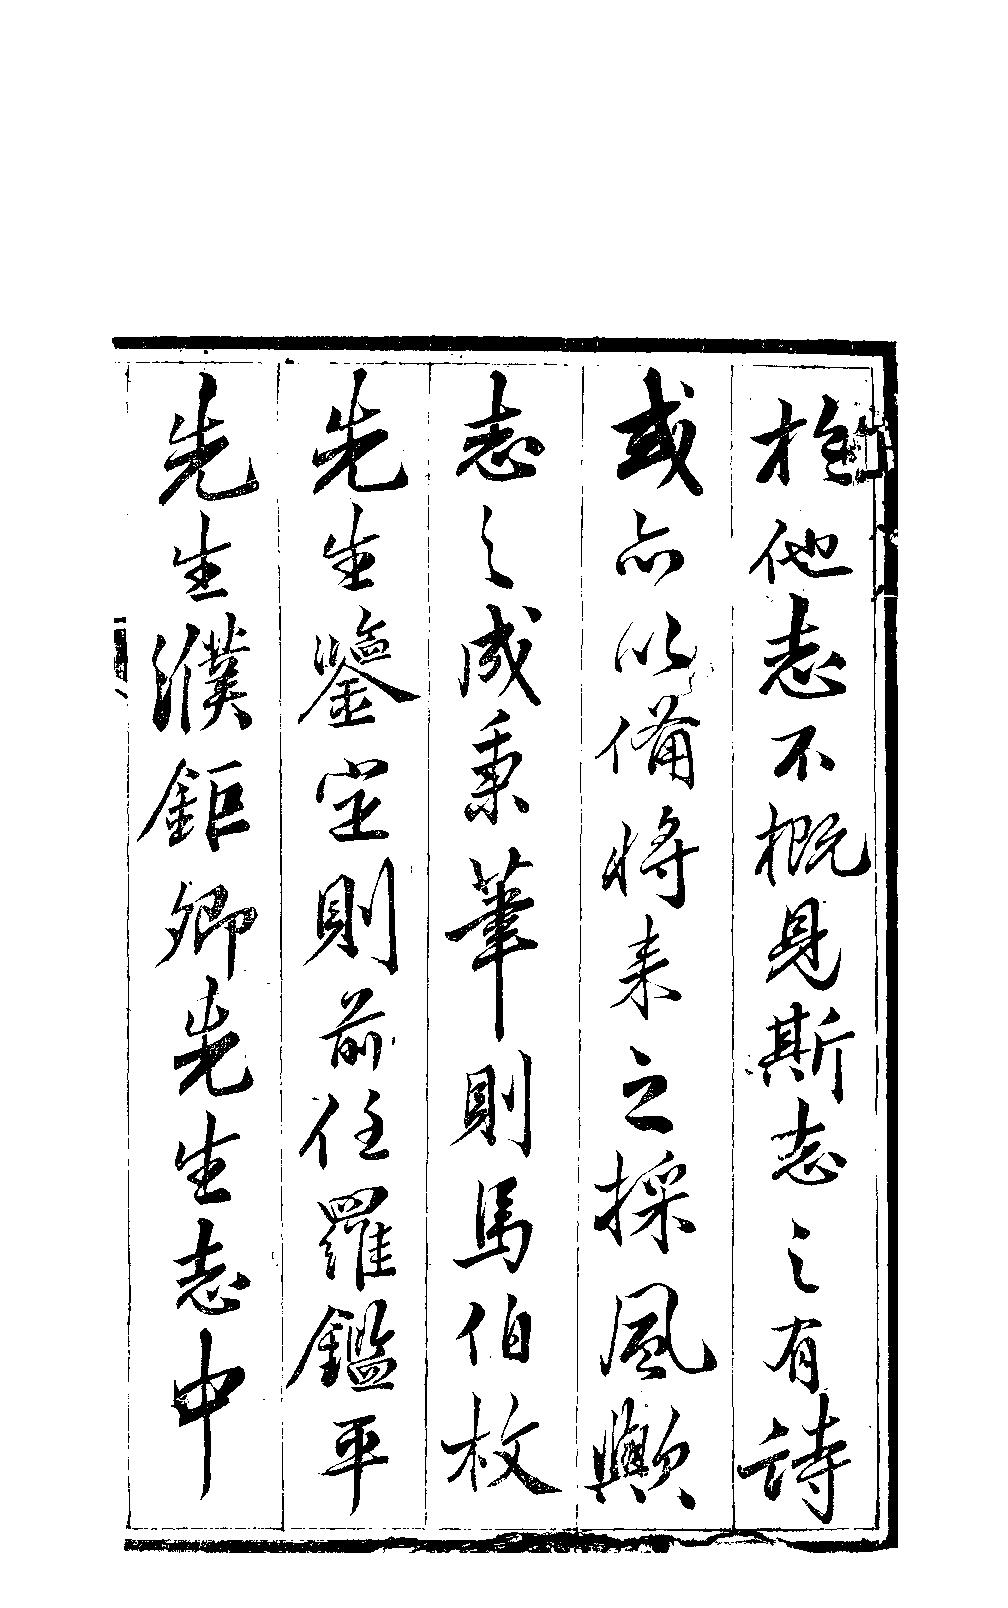 扵他志不概見斯志之有詩
或亦以備將來之採風歟
志之成秉筆則馬伯枚
先生鑒定則前任羅鑑平
先生濮鉅卿先生志中